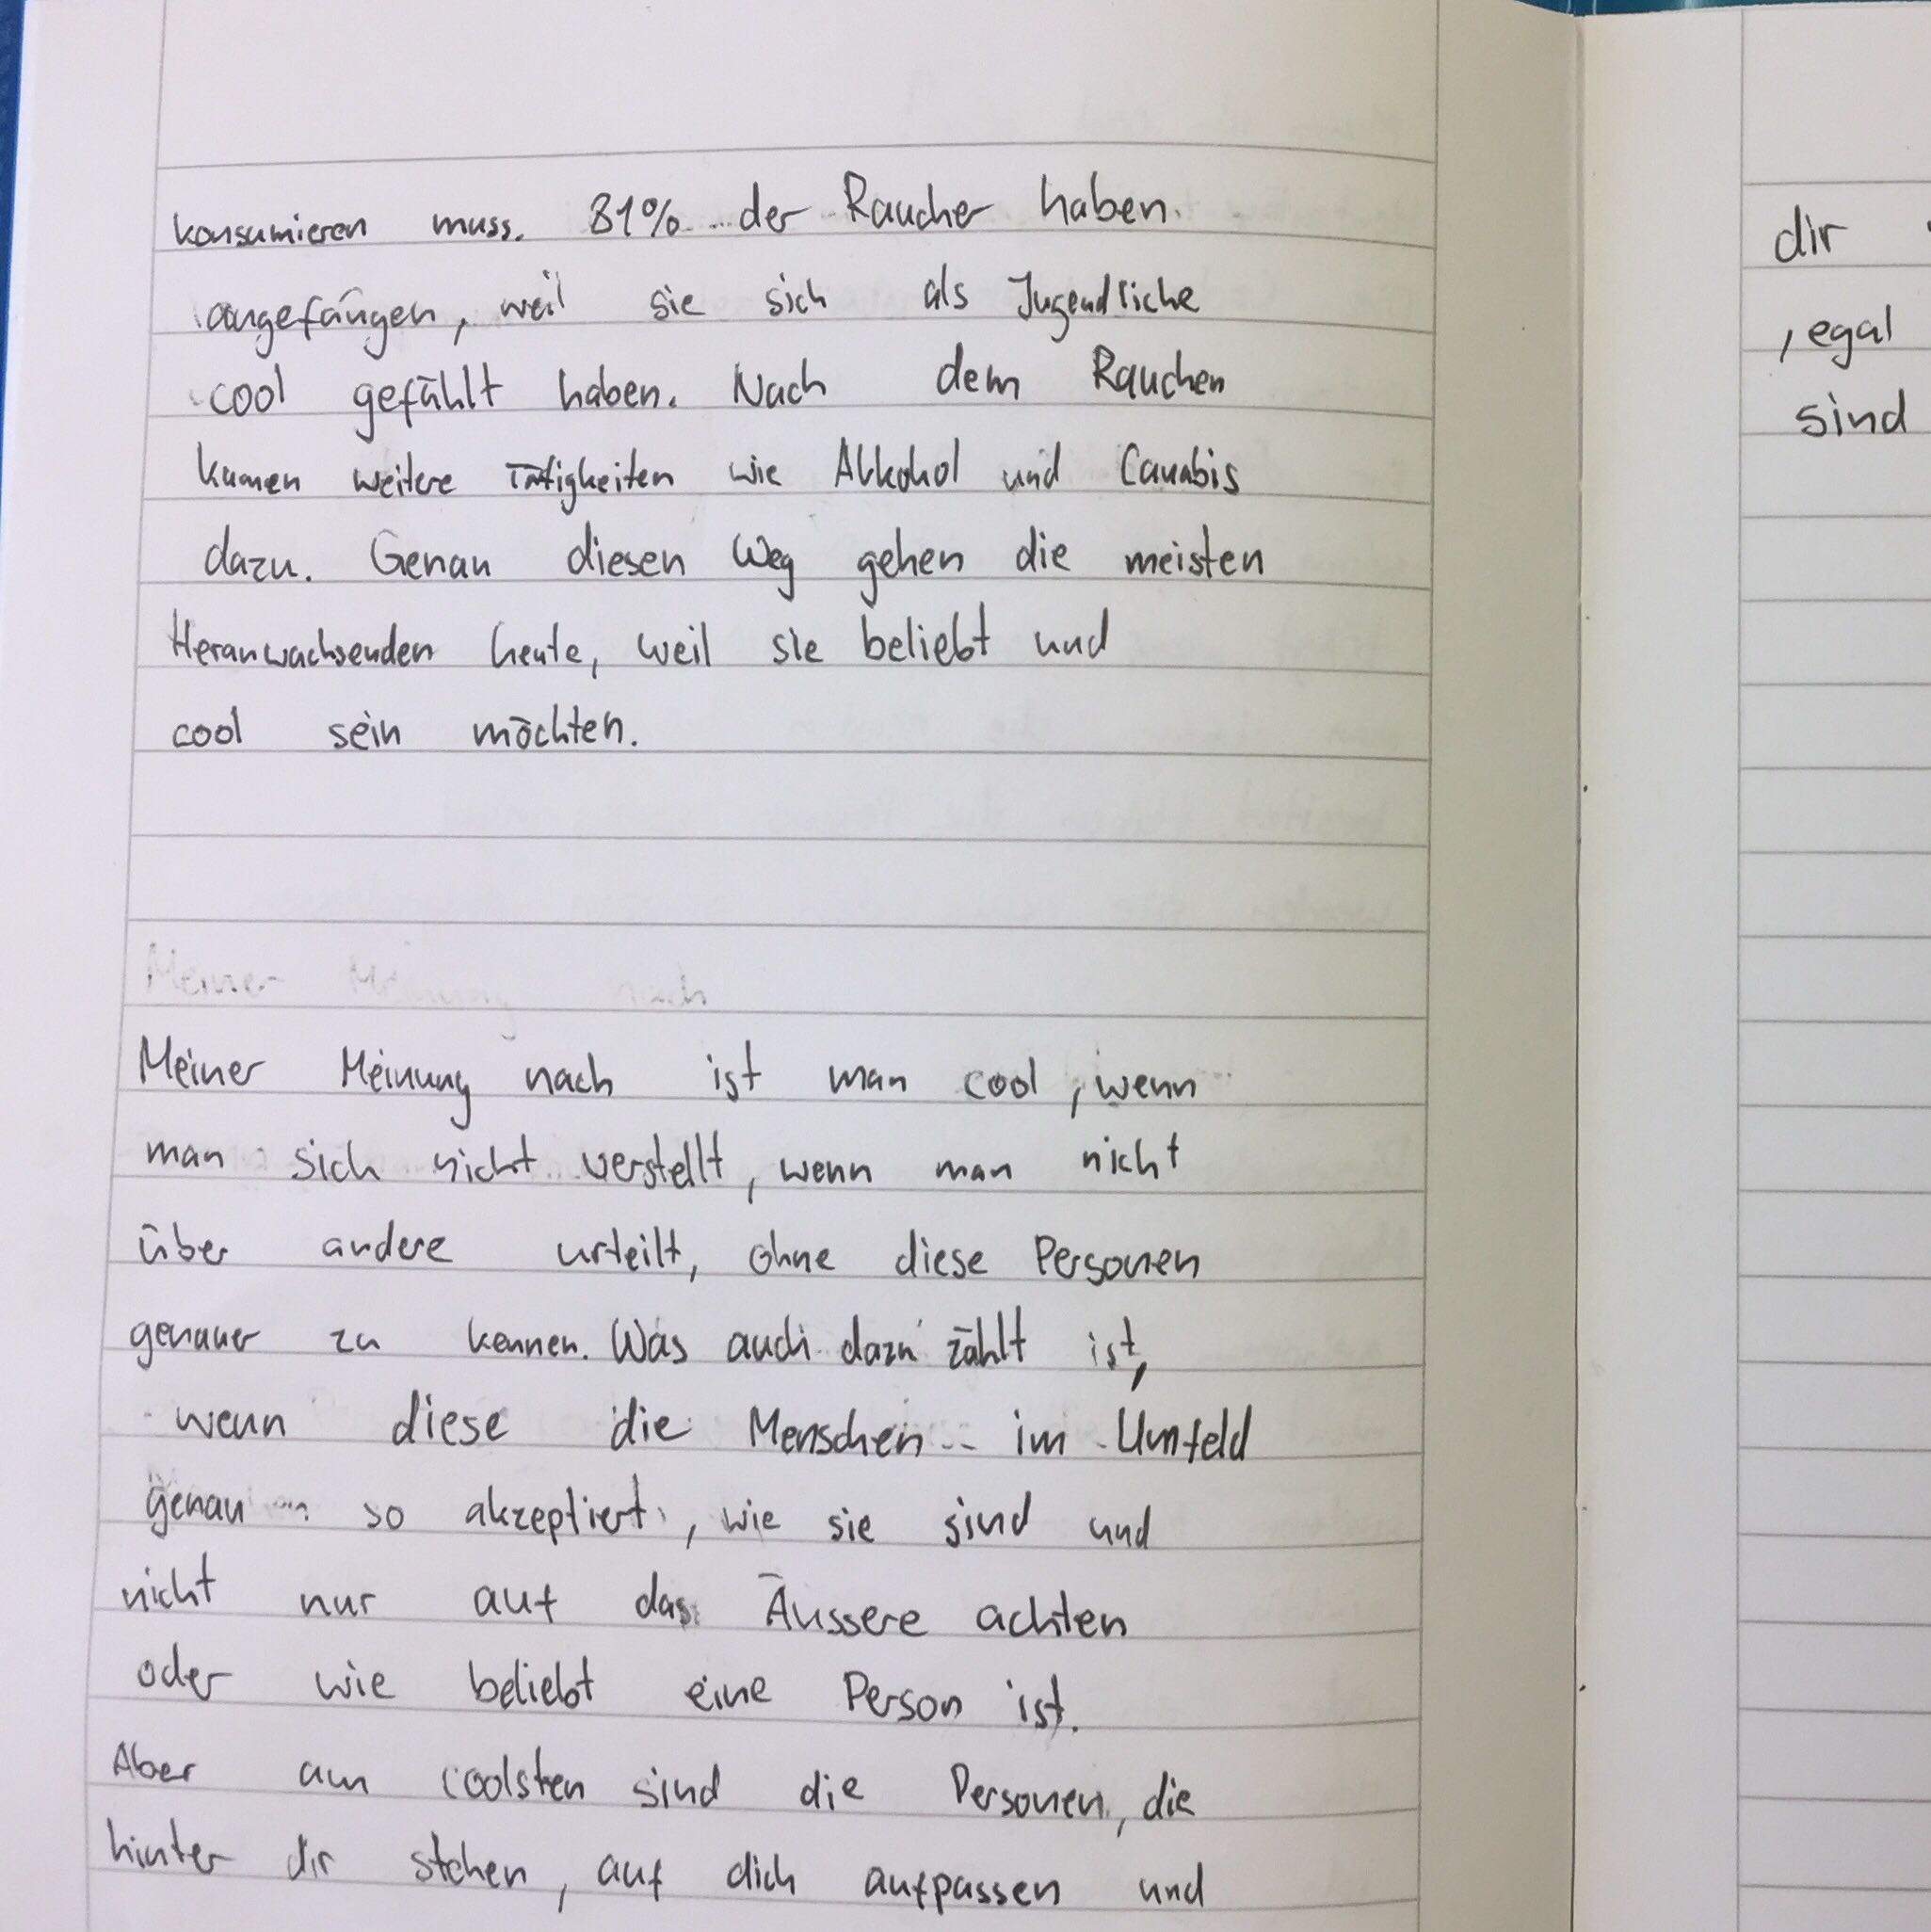 konsumieren muss. 81% der Raucher haben
angefangen, weil sie sich als Jugendliche
cool gefühlt haben. Nach dem Rauchen
kamen weitere Tätigkeiten wie Alkohol und Canabis
dazu. Genau diesen Weg gehen die meisten
Heranwachsenden heute, weil sie beliebt und
cool sein möchten.
Meiner Meinung nach
Meiner Meinung nach ist man cool, wenn
man sich nicht verstellt, wenn man nicht
über andere urteilt, ohne diese Personen
genauer zu kennen. Was auch dazu zählt ist,
wenn diese die Menschen im Umfeld
genau so akzeptiert, wie sie sind und
nicht nur auf das Äussere achten
oder wie beliebt eine Person ist.
Aber am coolsten sind die Personen, die
hinter dir stehen, auf dich aufpassen und
dir
, egal
sind